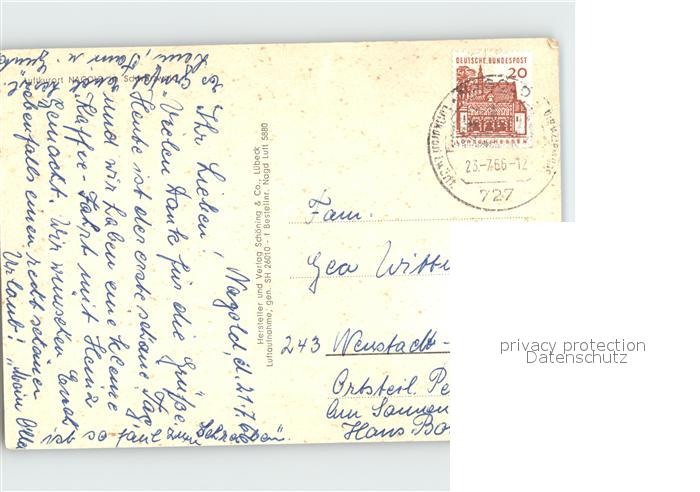 Luftkurort NAGOLD
Nagold, d. 21.7.66
Ihr Lieben!
Vielen Dank für die Grüße.
Heute ist der erste schöne Tag
und wir haben eine kleine
Kaffee-Fahrt mit Heinz
gemacht. Wir wünschen Euch
ebenfalls einen recht schönen
Urlaub!
ist so faul zum Schreiben".
Hersteller und Verlag Schöning & Co., Lübeck
Luftaufnahme, gen. SH 26010 - 1 Bestellnr. Nagd Luft 5880
DEUTSCHE BUNDESPOST
20
LORSCH/HESSEN
23.-7.66-12
727
Fam.
Gea Witt
243 Neustadt-
Ortsteil Pe
Am Sonnen
Hans Bo
privacy protection
Datenschutz